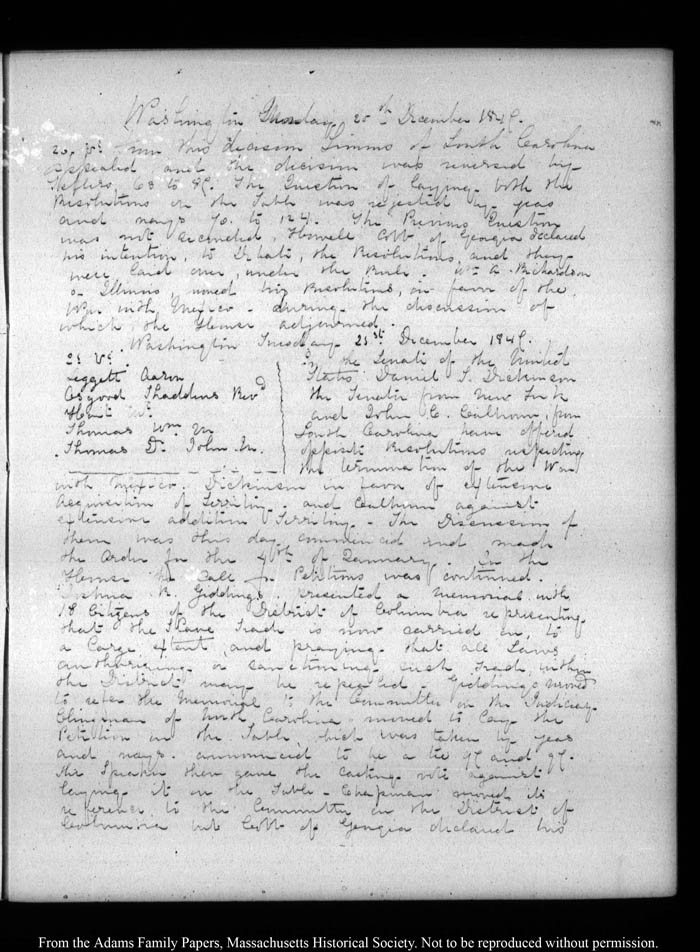 Washington Monday 20th December 1847.
20. V. from this decision Simms of South Carolina
appealed and the decision was reversed by
Tellers, 63 to 87. The Question of laying both the
Resolutions on the Table was rejected by yeas
and nays 70. to 124. The Previous Question
was not seconded, Howell Cobb of Georgia declared
his intention, to Debate, the Resolutions, and they
were laid over, under the Rule. Wm A. Richardson
of Illinois moved his Resolutions, in favor of the
War with Mexico - during the discussion of
which, the House adjourned.
Washington Tuesday 21st December 1847.
21. V.
Leggett Aaron
Osgood Thaddeus Revd
Thomas Wm M
Thomas Dr John M.
In the Senate of the United
States Daniel S. Dickinson
the Senator from New York
and John C. Calhoun, from
South Carolina have offered
opposite Resolutions respecting
the termination of the War
with Mexico. Dickinson in favor of extensive
acquisition of Territory, and Calhoun against
extensive addition Territory - The Discussion of
them was this day commenced and made
the order for the 4th of January. In the
House the Call for Petitions was continued.
Joshua R. Giddings presented a memorial with
18 Citizens of the District of Columbia representing
that the Slave Trade is now carried on, to
a large extent and praying that all Laws
authorizing or sanctioning such Trade within
the District may be repealed Giddings moved
to refer the Memorial to the Committee on the Judiciary.
Clingman of North Carolina moved to lay the
Petition on the Table, which was taken by yeas
and nays. announced to be a tie 97 and 97.
the Speaker then gave the casting vote against
laying it on the Table - Chapman moved its
reference to the Committee on the District of
Columbia but Cobb of Georgia declared his
From the Adams Family Papers, Massachusetts Historical Society. Not to be reproduced without permission.